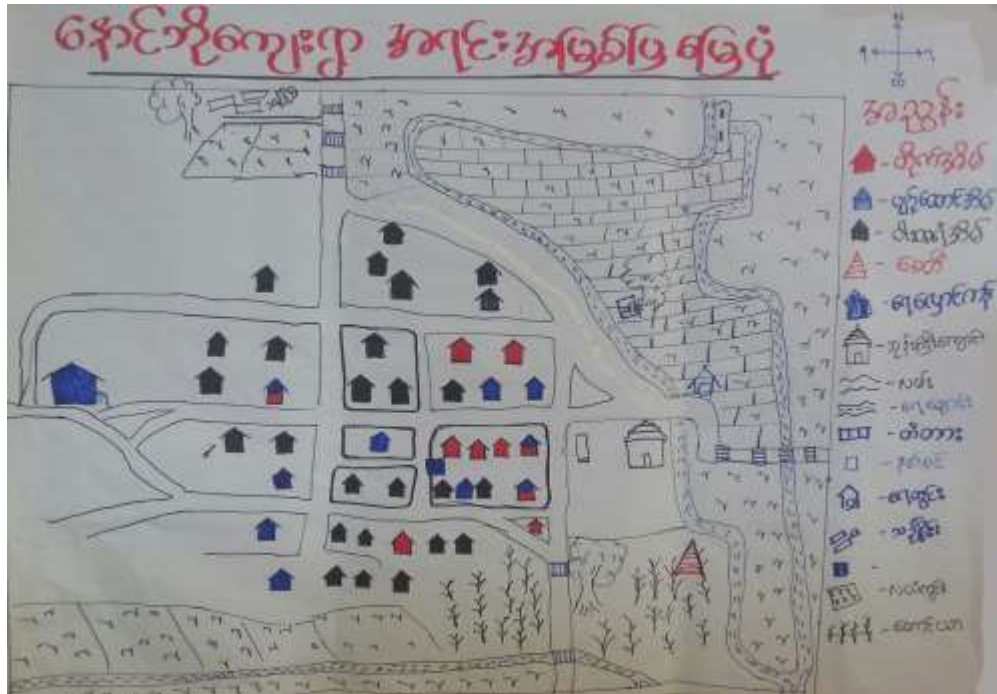 နောင်ဘိုကျေးရွာ အရင်းအမြစ်ပြ မြေပုံ
အညွှန်း
- တိုက်အိမ်
- ပျဉ်ထောင်အိမ်
- ဝါးထရံအိမ်
- စေတီ
- ဘုန်းကြီးကျောင်း
- လမ်း
- ရေချောင်း
- တံတား
- ရေတွင်း
- သင်္ချိုင်း
- လယ်ကွင်း
- တောင်ယာ